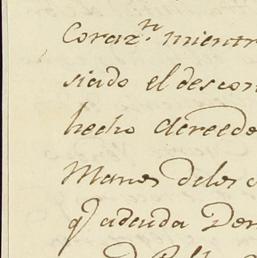 Corazn. mientr
siado el descon
hecho acreede
Manes delos
q adeuda Der